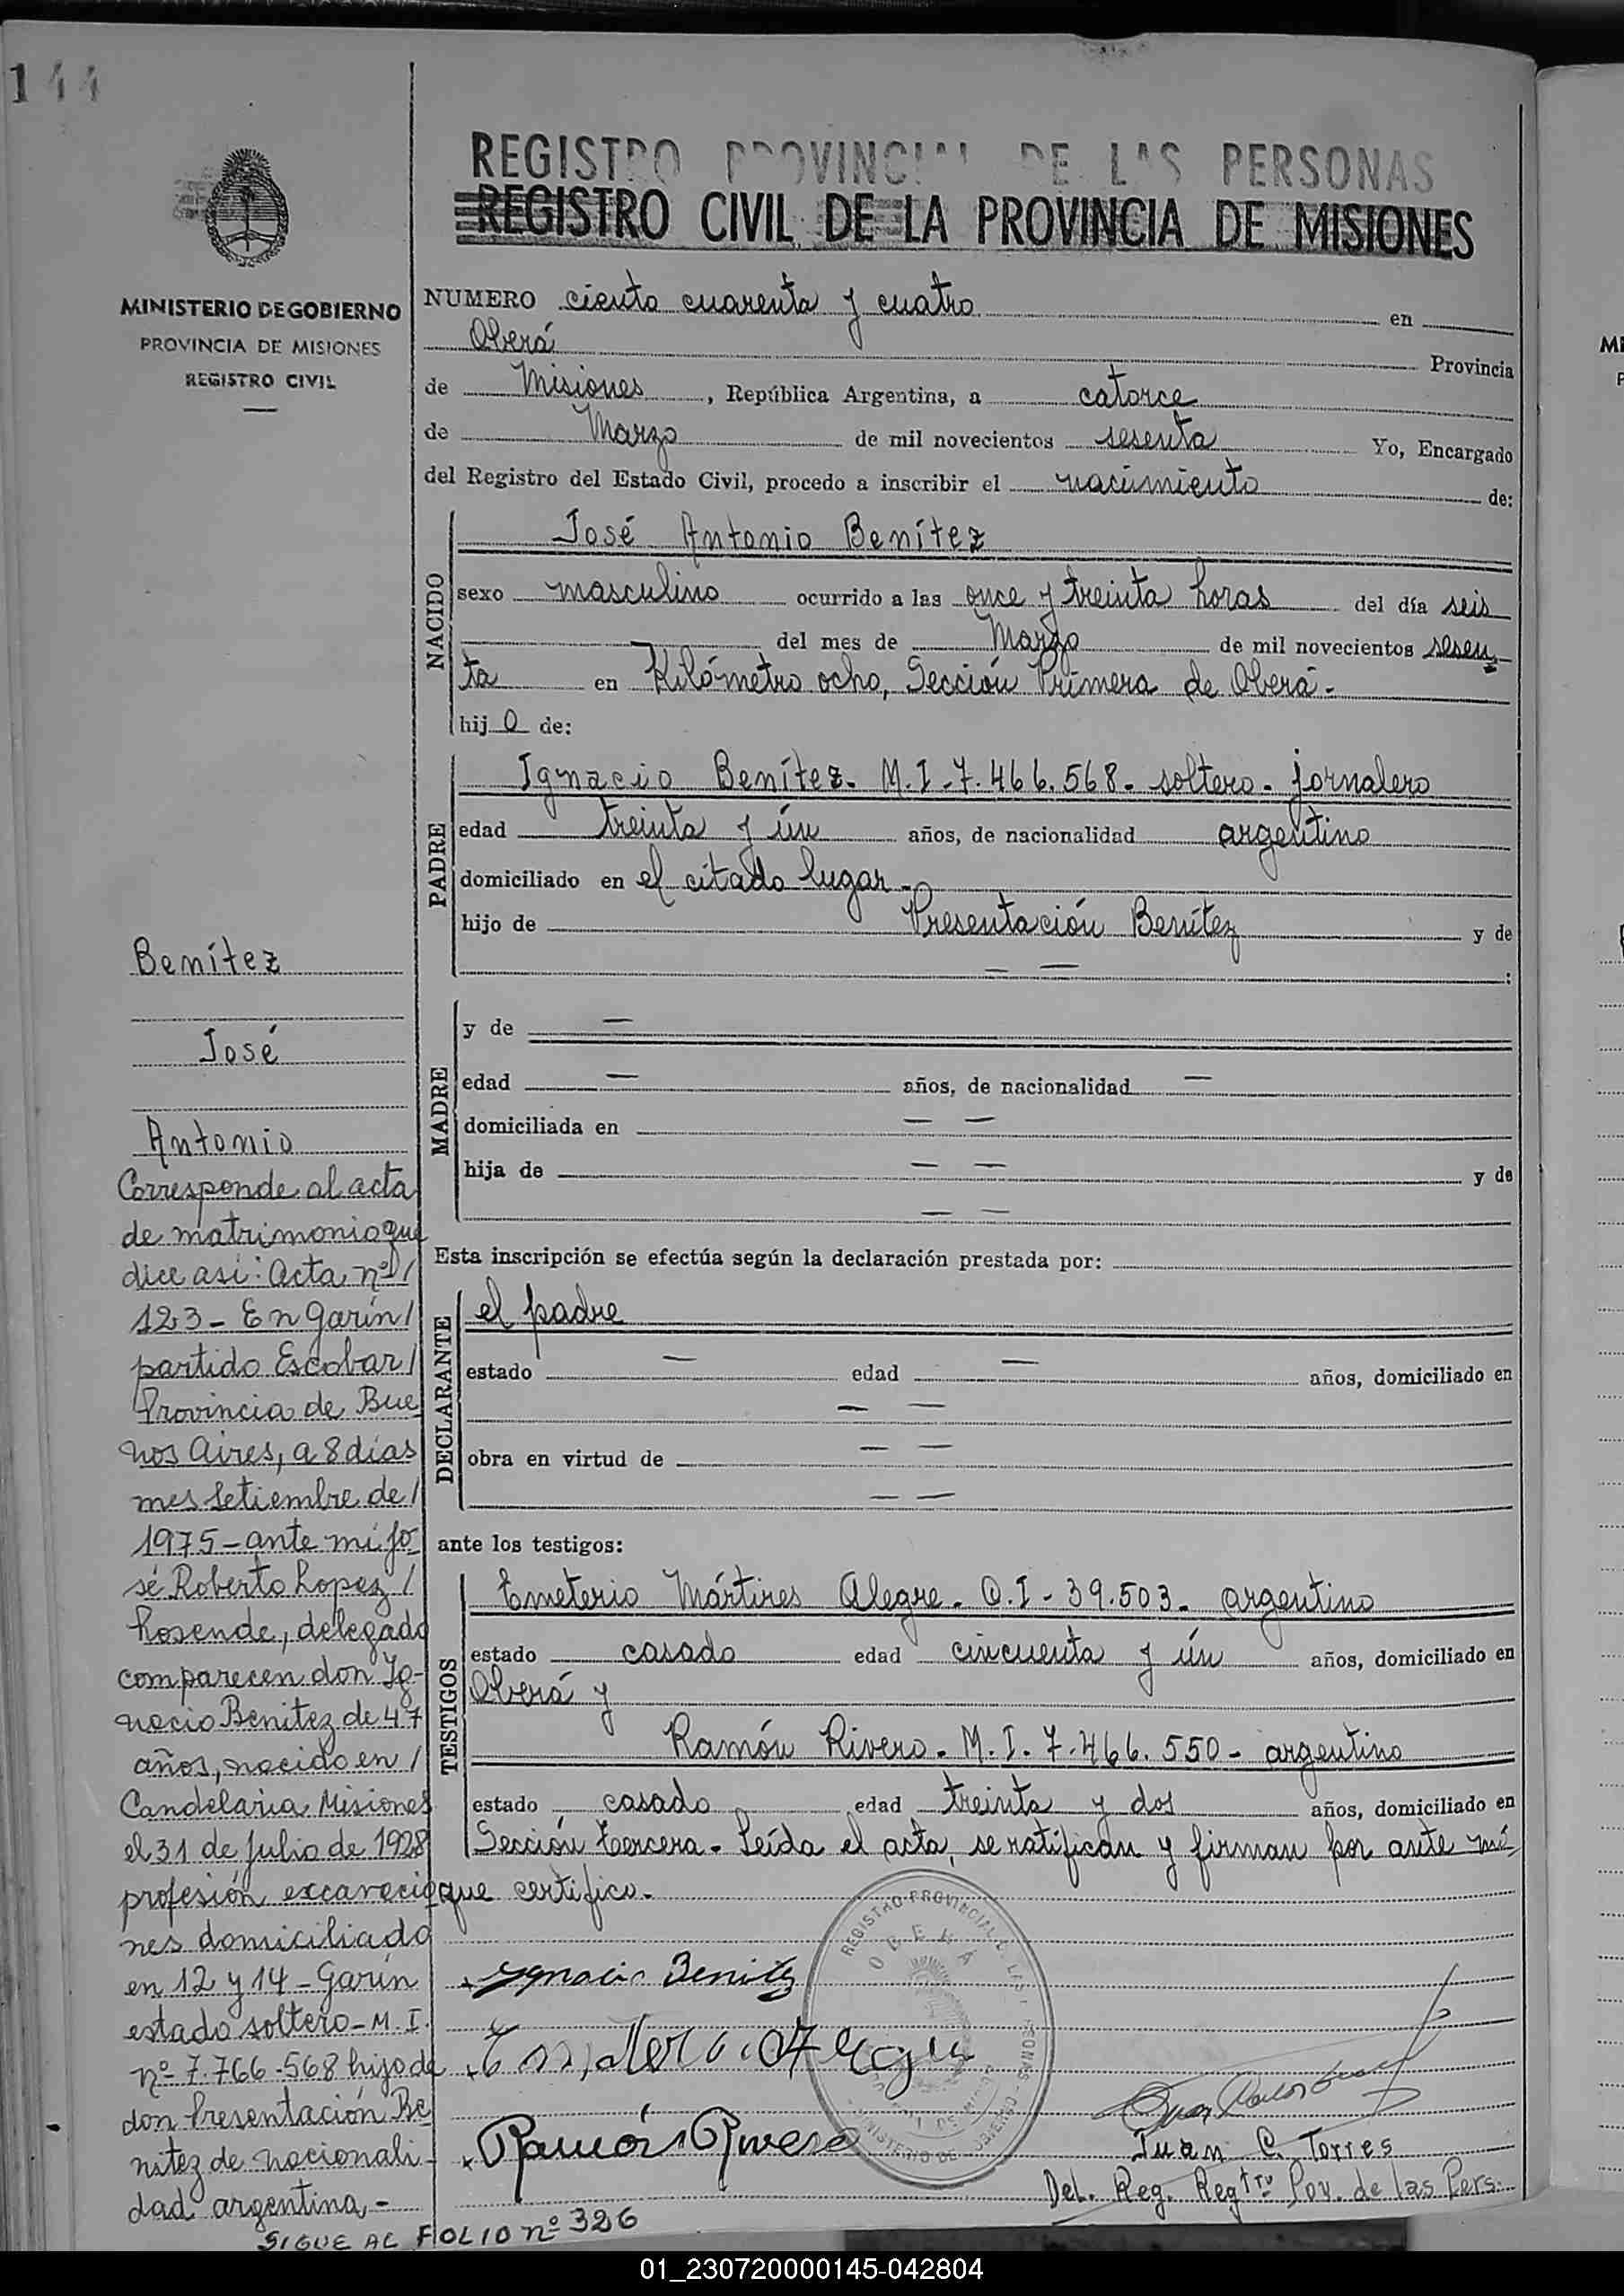 144
REGISTRO PROVINCIAL DE LAS PERSONAS
REGISTRO CIVIL DE LA PROVINCIA DE MISIONES
MINISTERIO DE GOBIERNO
PROVINCIA DE MISIONES
REGISTRO CIVIL
NUMERO ciento cuarenta y cuatro en
Oberá Provincia
de Misiones, República Argentina, a catorce
de Marzo de mil novecientos sesenta Yo, Encargado
del Registro del Estado Civil, procedo a inscribir el nacimiento de:
NACIDO
José Antonio Benítez
sexo masculino ocurrido a las once y treinta horas del día seis
del mes de Marzo de mil novecientos sesen
ta en Kilómetro ocho, Sección Primera de Oberá.-
hijo de:
PADRE
Ignacio Benítez. M.I-7.466.568- soltero- jornalero
edad treinta y ún años, de nacionalidad argentino
domiciliado en el citado lugar-
hijo de Presentación Benítez y de
— — :
MADRE
y de —
edad — años, de nacionalidad —
domiciliada en — —
hija de — — y de
— —
Esta inscripción se efectúa según la declaración prestada por:
DECLARANTE
el padre
estado — edad — años, domiciliado en
— —
obra en virtud de — —
— —
ante los testigos:
TESTIGOS
Emeterio Mártires Alegre. C.I- 39.503- argentino
estado casado edad cincuenta y ún años, domiciliado en
Oberá y
Ramón Rivero. M.I. 7.466.550- argentino
estado casado edad treinta y dos años, domiciliado en
Sección tercera- Leída el acta, se ratifican y firman por ante mí
que certifico.-
Ignacio Benitez
Ramón Rivero
REGISTRO PROVINCIAL DE LAS PERSONAS
OBERÁ
MINISTERIO DE GOBIERNO
Juan C. Torres
Del. Reg. Regtro Pov. de las Pers.
Benítez
José
Antonio
Corresponde al acta
de matrimonio que
dice asi: Acta nº/
123- En Garín/
partido Escobar/
Provincia de Bue
nos Aires, a 8 días
mes Setiembre de/
1975- ante mí Jo
sé Roberto Lopez/
Rosende, delegado
comparecen don Ig-
nacio Benitez de 47
años, nacido en/
Candelaria Misiones
el 31 de Julio de 1928
profesión excavacio
nes domiciliado
en 12 y 14- Garín
estado soltero- M.I.
nº- 7.766-568 hijo de
don Presentación Be
nitez de nacionali-
dad argentina,-
SIGUE AL FOLIO nº 326
01_230720000145-042804